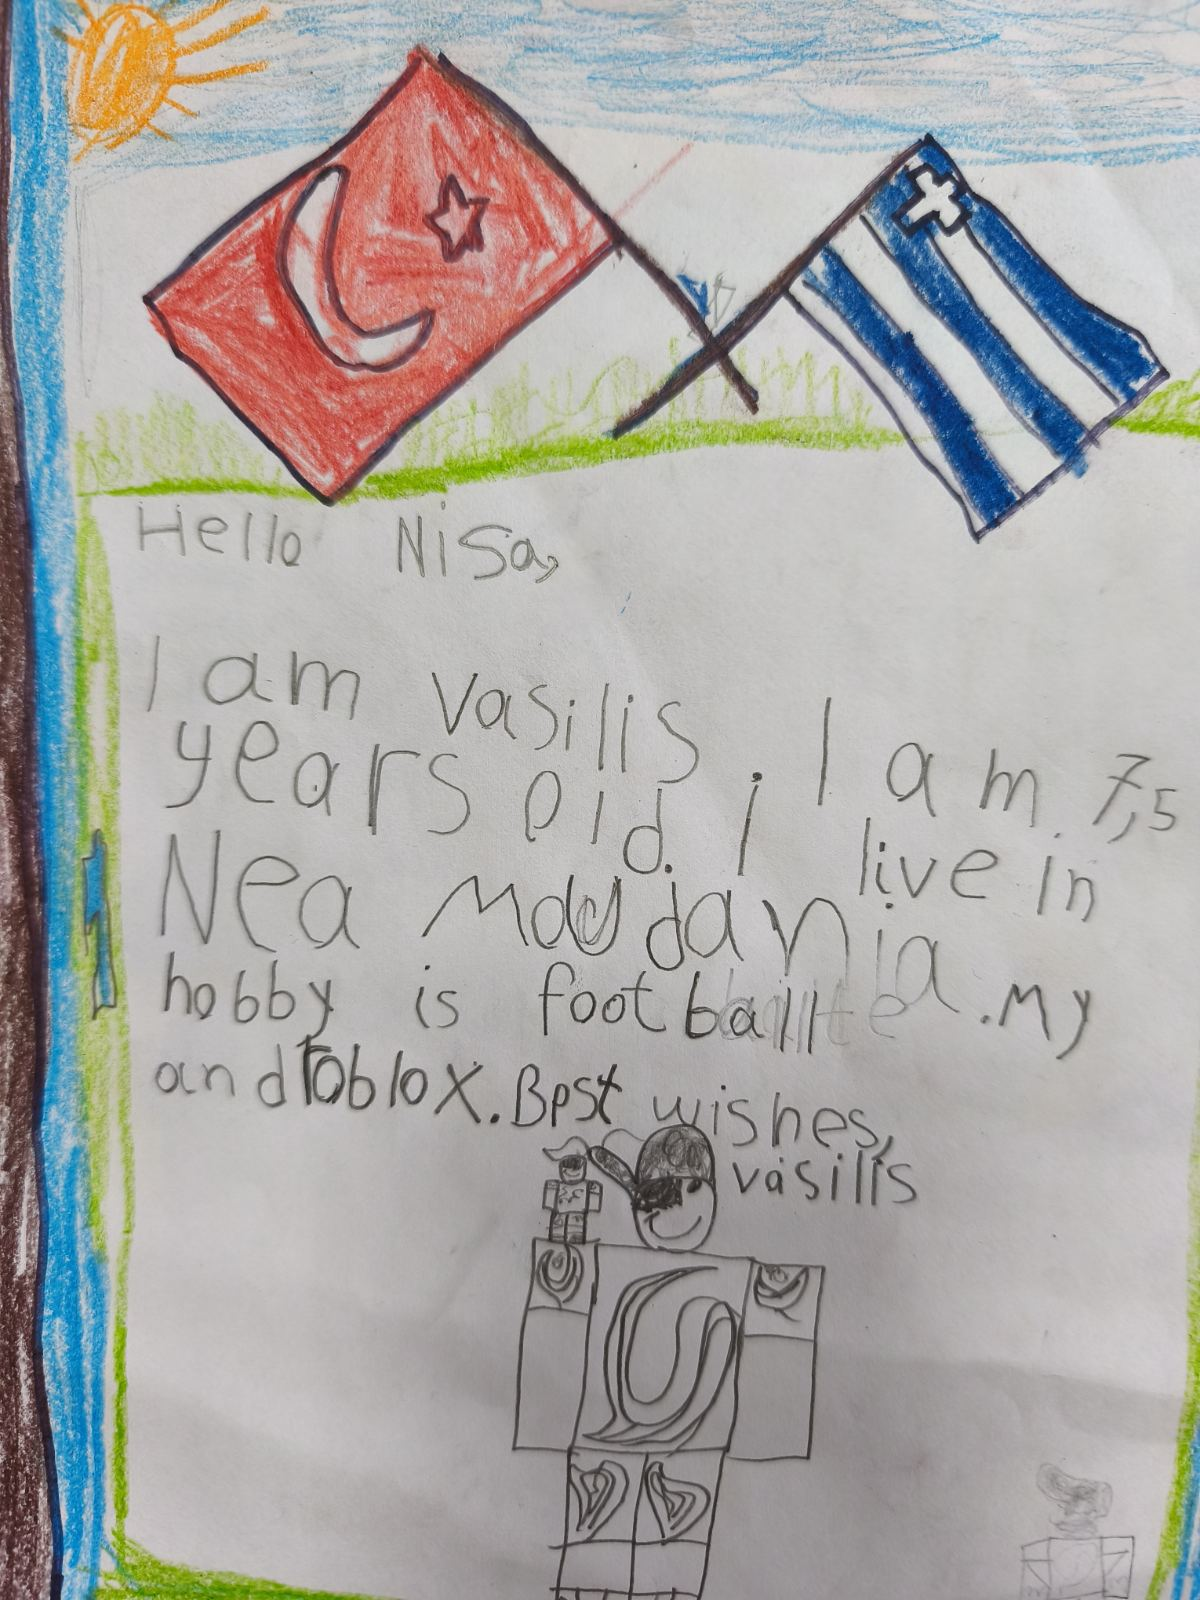 Hello Nisa,
I am Vasilis. I am 7,5
years old. I live in
Nea Moudania. My
hobby is football
and roblox. Best wishes,
vasilis